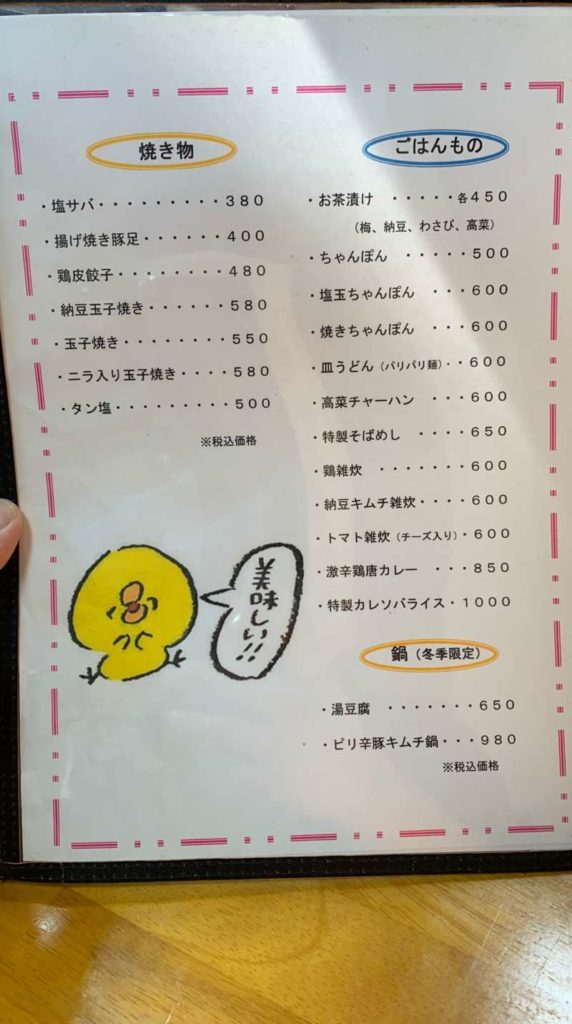 焼き物
・塩サバ・・・・・・・・・380
・揚げ焼き豚足・・・・・・400
・鶏皮餃子・・・・・・・・480
・納豆玉子焼き・・・・・・580
・玉子焼き・・・・・・・・550
・ニラ入り玉子焼き・・・・580
・タン塩・・・・・・・・・500
※税込価格
美味しい!!
ごはんもの
・お茶漬け ・・・・・各450
(梅、納豆、わさび、高菜)
・ちゃんぽん ・・・・・500
・塩玉ちゃんぽん ・・・600
・焼きちゃんぽん ・・・600
・皿うどん(パリパリ麺)・・600
・高菜チャーハン ・・・600
・特製そばめし ・・・・650
・鶏雑炊 ・・・・・・・600
・納豆キムチ雑炊・・・・600
・トマト雑炊(チーズ入り)・600
・激辛鶏唐カレー ・・・850
・特製カレソバライス・1000
鍋(冬季限定)
・湯豆腐 ・・・・・・・650
・ピリ辛豚キムチ鍋・・・980
※税込価格